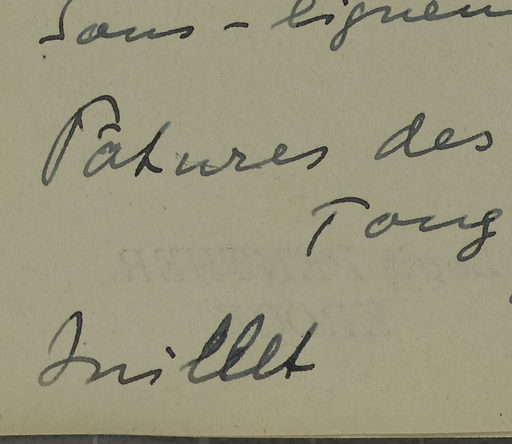 Sous-ligneu
Pâtures des
Tong
Juillet